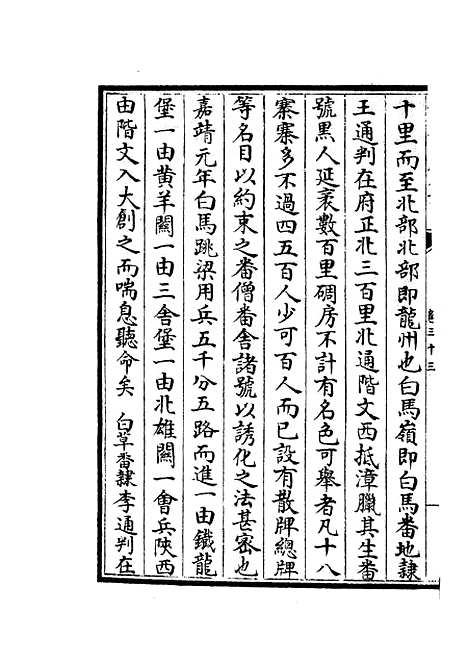 卷三十三
十里而至北部北部即龍州也白馬嶺即白馬番地隷
王通判在府正北三百里北通階文西抵漳臘其生番
號黒人延袤數百里碉房不計有名色可舉者凡十八
寨寨多不過四五百人少可百人而已設有散牌總牌
等名目以約束之番僧番舍諸號以誘化之法甚宻也
嘉靖元年白馬跳梁用兵五千分五路而進一由鐵龍
堡一由黄羊關一由三舎堡一由北雄關一會兵陜西
由階文入大創之而喘息聽命矣 白草番隷李通判在